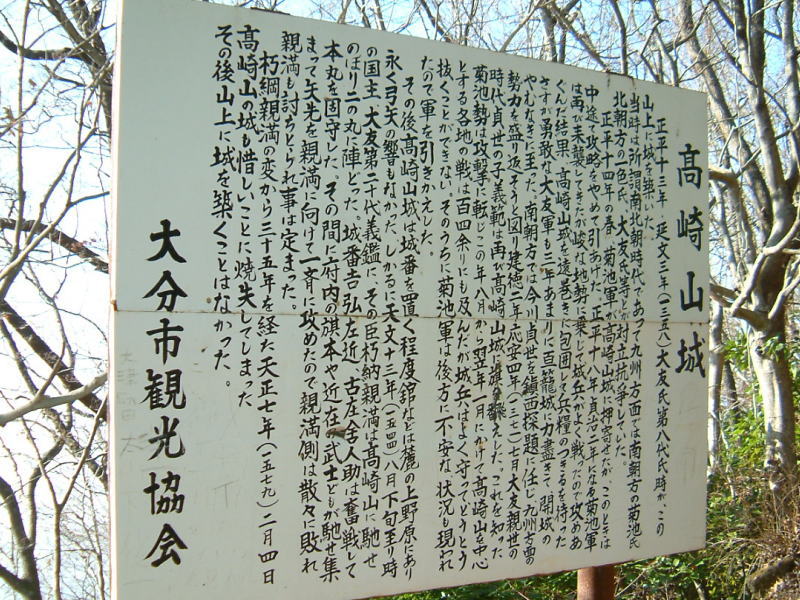 高崎山城
正平十三年、延文三年(一三五八)大友氏第八代氏時が、この
山上に城を築いた。
当時は所謂南北朝時代であって九州方面では南朝方の菊池氏
北朝方の一色氏、大友氏等とが対立抗争していた。
正平十四年の春、菊池軍が高崎山城に押寄せたが、このときは
中途で攻略をやめて引あげた。正平十八年貞治二年になる菊池軍
は再び来襲してきたが峻な地勢に乗じて城兵がよく戦ったので攻めあ
ぐんだ結果、高崎山城を遠巻きに包囲して兵糧のつきるを待った
さすが勇敢な大友軍も三年あまりに亘籠城に力盡きて、開城の
やむなきに至った。南朝方では今川貞世を鎮西探題に任じ九州方面の
勢力を盛り返そうと図り建徳二年応安四年(一三七一)七月大友親世の
時代貞世の子義範は再び高崎山城に えした。これを知った
菊池勢は攻撃に転じこの年八月から翌年一月にかけて高崎山を中心
とする各地の戦は百四余りにも及んだが城兵はよく守ってとうとう
抜くことができない。そのうちに菊池軍は後方に不安な状況も現われ
たので軍を引きかえした。
その後高崎山城は城番を置く程度館などは麓の上野原にあり
永く弓矢の響もなかった。しかるに天文十三年(一五四四)八月下旬至り時
の国主、大友第二十代義鑑に、その臣朽納親満は高崎山に馳せ
のぼり二の丸に陣どった。城番吉弘左近、古庄舎人助は奮戦して
本丸を固守した。その間に府内の旗本や近在の武士どもが馳せ集
まって矢先を親満に向けて一斉に攻めたので親満側は散々に敗れ
親満も討ちとられ事は定まった。
朽綱親満の変から三十五年を経た天正七年(一五七九)二月四日
高崎山の城も惜しいことに焼失してしまった
その後山上に城を築くことはなかった。
大分市観光協会